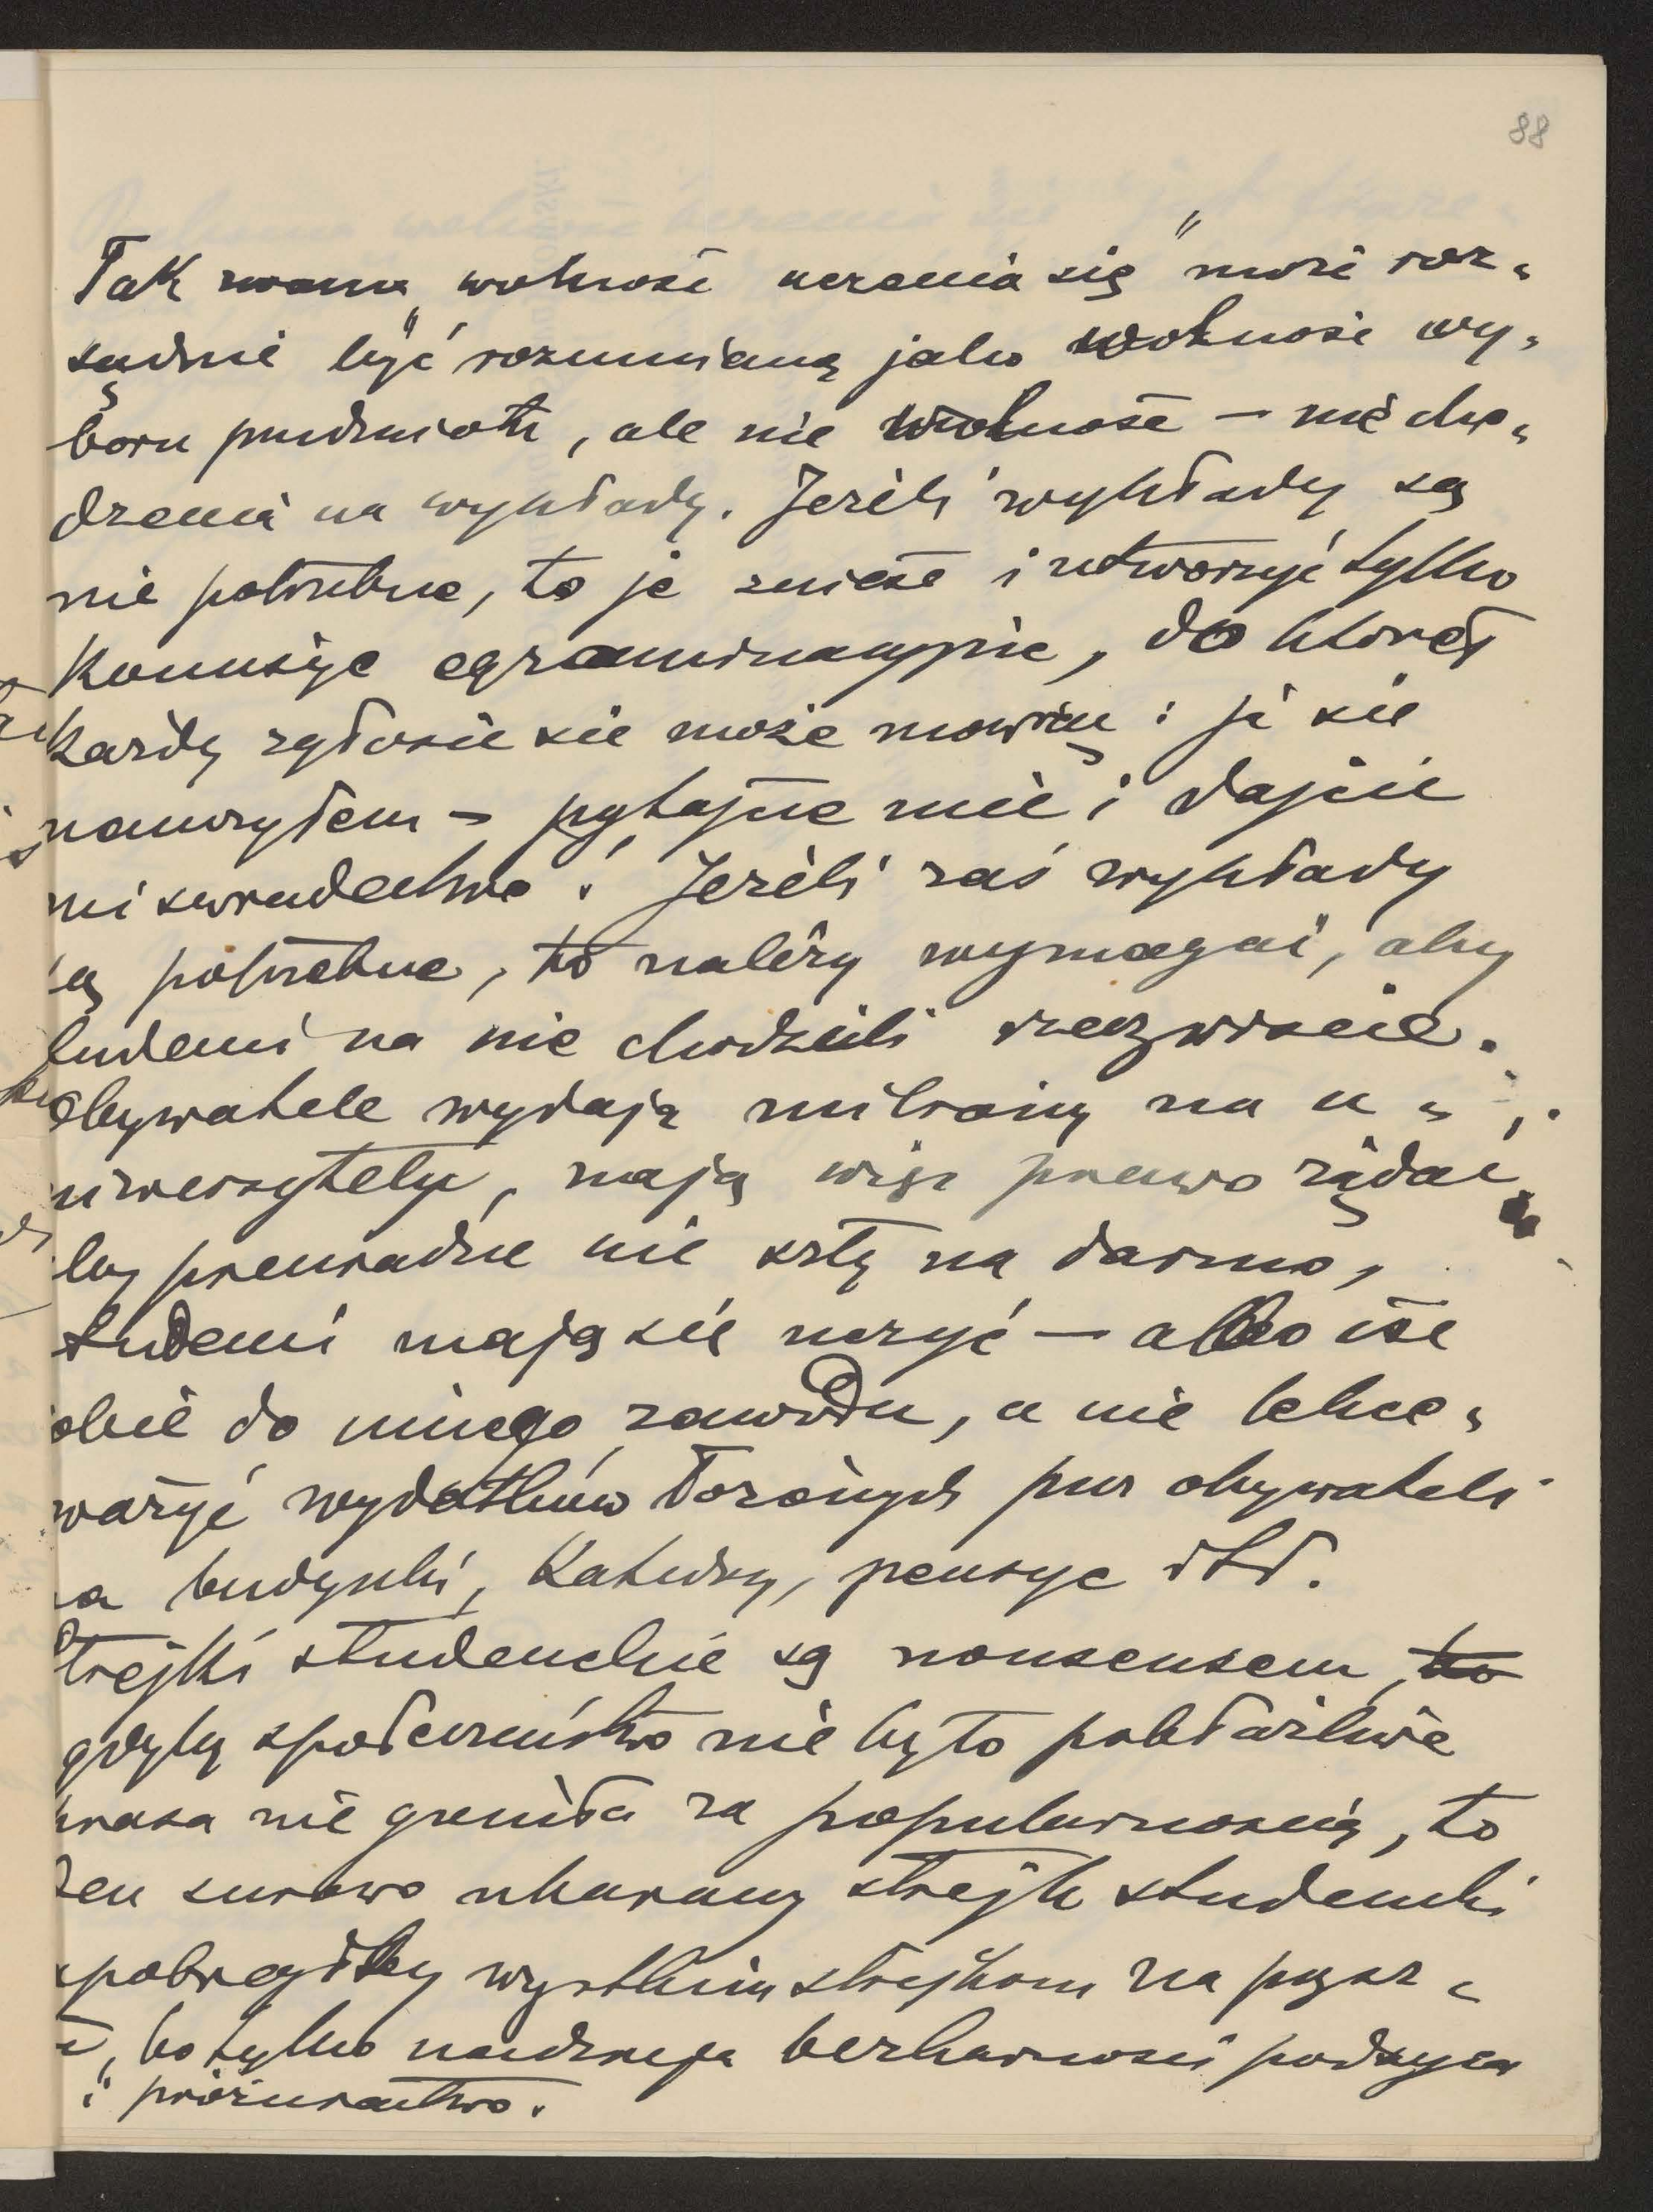 88
Tak zwana „wolność uczenia się" może roz„
sądnie być rozumianą jako wolność wy„
boru przedmiotu, ale nie wolność — nie cho„
dzenia na wykłady. Jeżeli wykłady są
nie potrzebne, to je znieść i utworzyć tylko
Komisye egzaminacyjne, do której
każdy zgłosić się może mówiąc: ja się
nauczyłem – pytajcie mię i dajcie
mi świadectwo! Jeżeli zaś wykłady
są potrzebne, to należy wymagać, aby
studenci na nie chodzili rzeczywiście.
Obywatele wydają miliony na u„
niwersytety, mają więc prawo żądać,
by pieniądze nie szły na darmo,
studenci mają się uczyć — albo iść
sobie do innego zawodu, a nie lekce„
ważyć wydatków łożonych przez obywateli
na budynki, Katedry, pensye itd.
Strejki studenckie są nonsensem, to
gdyby społeczeństwo nie było pobłażliwe
prasa nie goniła za popularnością, to
jeden surowo ukarany strejk studencki
zapobiegłby wszystkim strejkom na przysz„
łość, bo tylko nadzieja bezkarności podsyca
i próżniactwo.